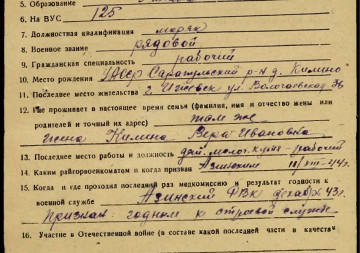 5. Образование
6. На ВУС 125
7. Должностная квалификация моряк
8. Военное звание рядовой
9. Гражданская специальность рабочий
10. Место рождения УАССР Сарапульский р-н д. Килино
11. Последнее место жительства г. Ижевск ул. Вологаевская 36
12. Где проживает в настоящее время семья (фамилия, имя и отчество жены или
родителей и точный их адрес) там же
жена Килина Вера Ивановна
13. Последнее место работы и должность рабочий
14. Каким райгорвоенкоматом и когда призван Азинским 11/VIII-41г.
15. Когда и где проходил последний раз медкомиссию и результат годности к
военной службе Азинский РВК декаб. 43г.
Признан годным к строевой службе
16. Участие в Отечественной войне (в составе какой последней части и в качестве